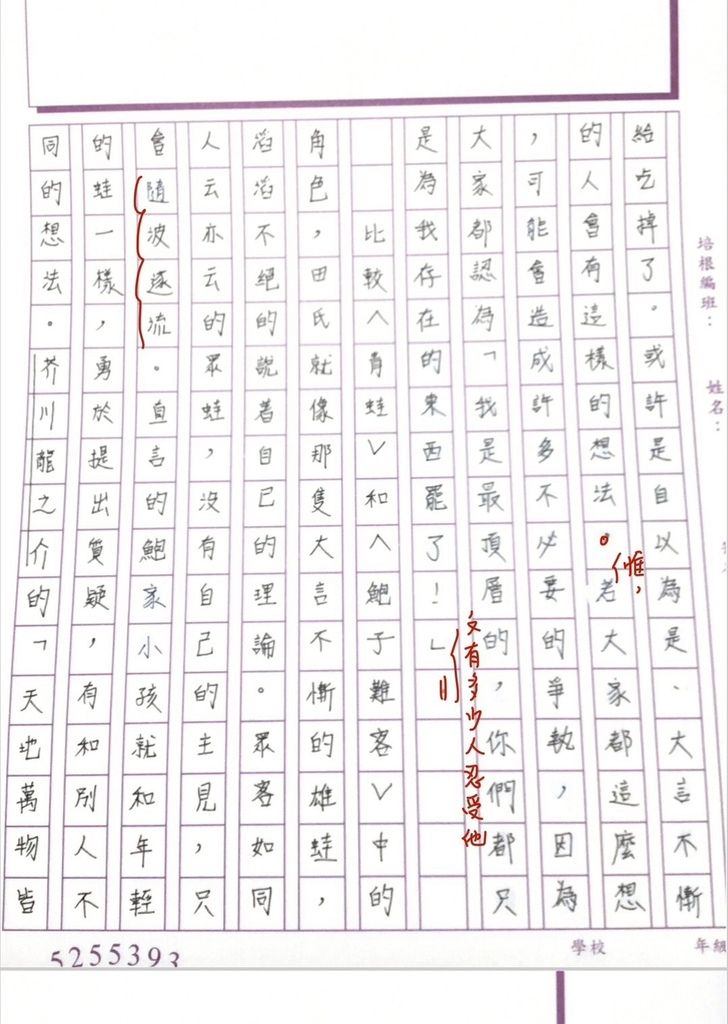 給吃掉了。或許是自以為是、大言不慚
的人會有這樣的想法。若大家都這麼想
惟，
，可能會造成許多不必要的爭執，因為
大家都認為「我是最頂層的，你們都只
又有多少人忍受他
是為我存在的東西罷了！」
比較〈青蛙〉和〈鮑子難客〉中的
角色，田氏就像那隻大言不慚的雄蛙，
滔滔不絕的說著自己的理論。眾客如同
人云亦云的眾蛙，沒有自己的主見，只
會隨波逐流。直言的鮑家小孩就和年輕
的蛙一樣，勇於提出質疑，有和別人不
同的想法。芥川龍之介的「天地萬物皆
培根編班：
姓名：
學校
年級
5255393